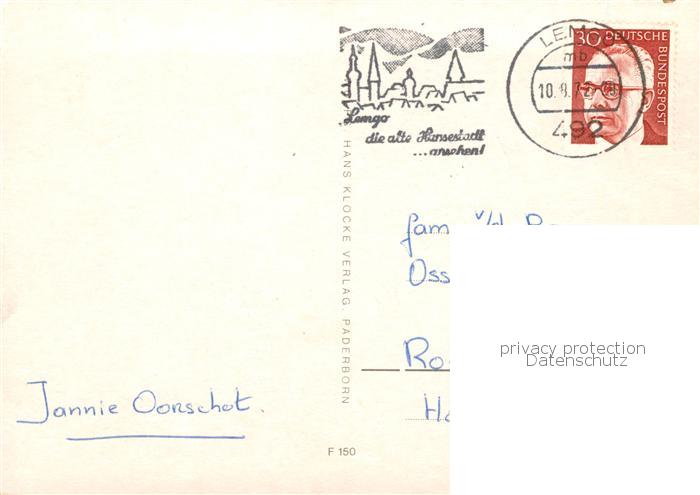 Lemgo
die alte Hansestadt
...ansehen!
LEM
mb
10.8.72
492
30 DEUTSCHE
BUNDESPOST
HANS KLOCKE VERLAG. PADERBORN
fam v/d
Oss
Ro
Jannie Oorschot.
F 150
privacy protection
Datenschutz